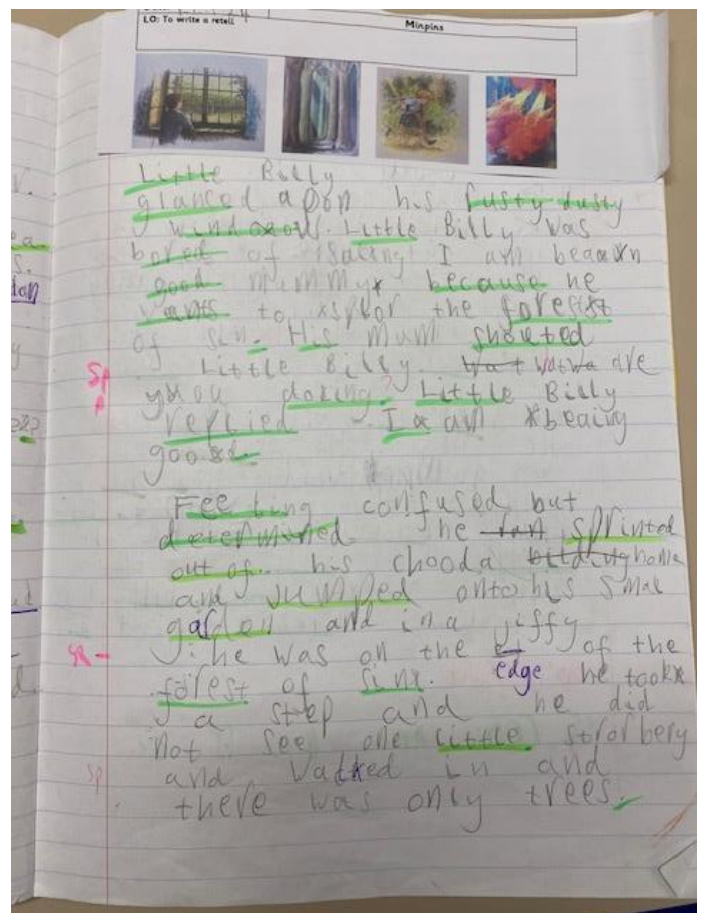 LO: To write a retell
Minpins
Little Billy
glanced apon his fusty dusty
window. Little Billy was
bored of saing I am beaan
good mummy because he
wants to xsplor the forest
of sin. His mum shouted
Little Billy. Wat Watwa are
you doking? Little Billy
replied I am beaing
good.
Feeling confused but
determined he ran sprinted
out of his chooda bilding home
and jumped onto his smal
garden and in a jiffy
he was on the of the
edge
forest of sinx. he took
a step and he did
not see one little strorbery
and walked in and
there was only trees.
Sp
Sp
Sp